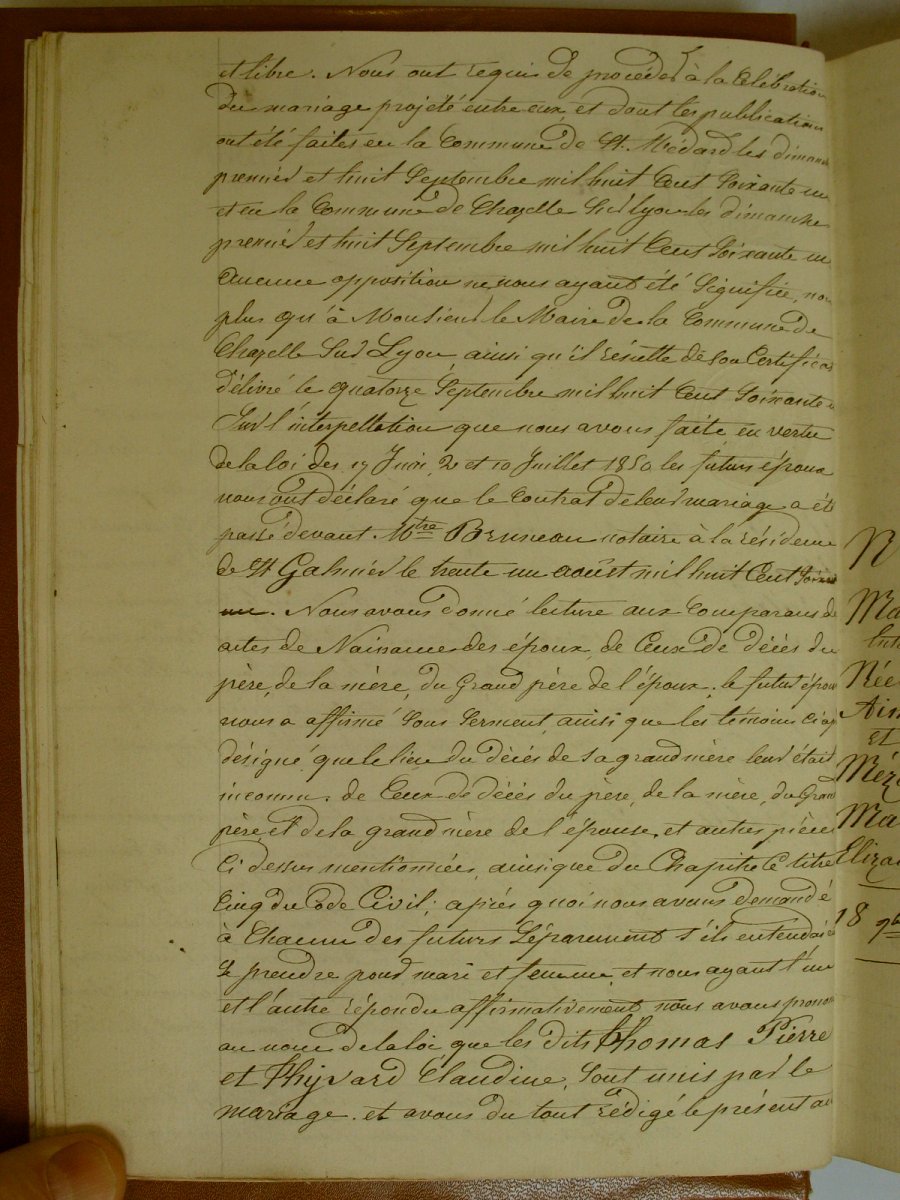 et libre. Nous ont requis de procéder à la Célébration
du mariage projeté entre eux, et dont les publications
ont été faites en la Commune de St. Médard les dimanch
premier et huit Septembre mil huit Cent Soixante un
et en la Commune de Chazelle Sur Lyon les dimanche
premier et huit Septembre mil huit Cent Soixante un
Aucune opposition ne nous ayant été Signifiée, non
plus qu'à Monsieur le Maire de la Commune de
Chazelle Sur Lyon ainsi qu'il résulte de son Certificat
délivré le quatorze Septembre mil huit Cent Soixante u
Sur l'interpellation que nous avons faite, en vertu
de la loi des 17 Juin, 2 et 10 Juillet 1850, les futurs époux
nous ont déclaré que le Contrat de leur mariage a été
passé devant Mtre Bruneau notaire à la résidence
de St Galmier le trente un août mil huit Cent Soixante
un. Nous avons donné lecture aux Comparans de
actes de Naissance des époux, de Ceux de décès du
père, de la mère, du Grand père de l'époux; le futur époux
nous a affirmé Sous Serment, ainsi que les témoins Ci ap
désigné que le lieu du décès de sa grand mère leur était
inconnu. de Ceux de décès du père, de la mère, du Grand
père et de la grand mère de l'épouse, et autres pièces
Ci dessus mentionnées, ainsi que du Chapitre 6 titre
Cinq du Code Civil; après quoi nous avons demandé
à Chacun des futurs Séparement s'ils entendaie
Se prendre pour mari et femme, et nous ayant l'un
et l'autre répondu affirmativement nous avons pronon
au nom de la loi que les dits Thomas Pierre
et Thijvard Claudine, Sont unis par le
mariage. et avons du tout rédigé le présent ac
N
Ma
Née
Ain
et
Ma
Eliza
18 9b